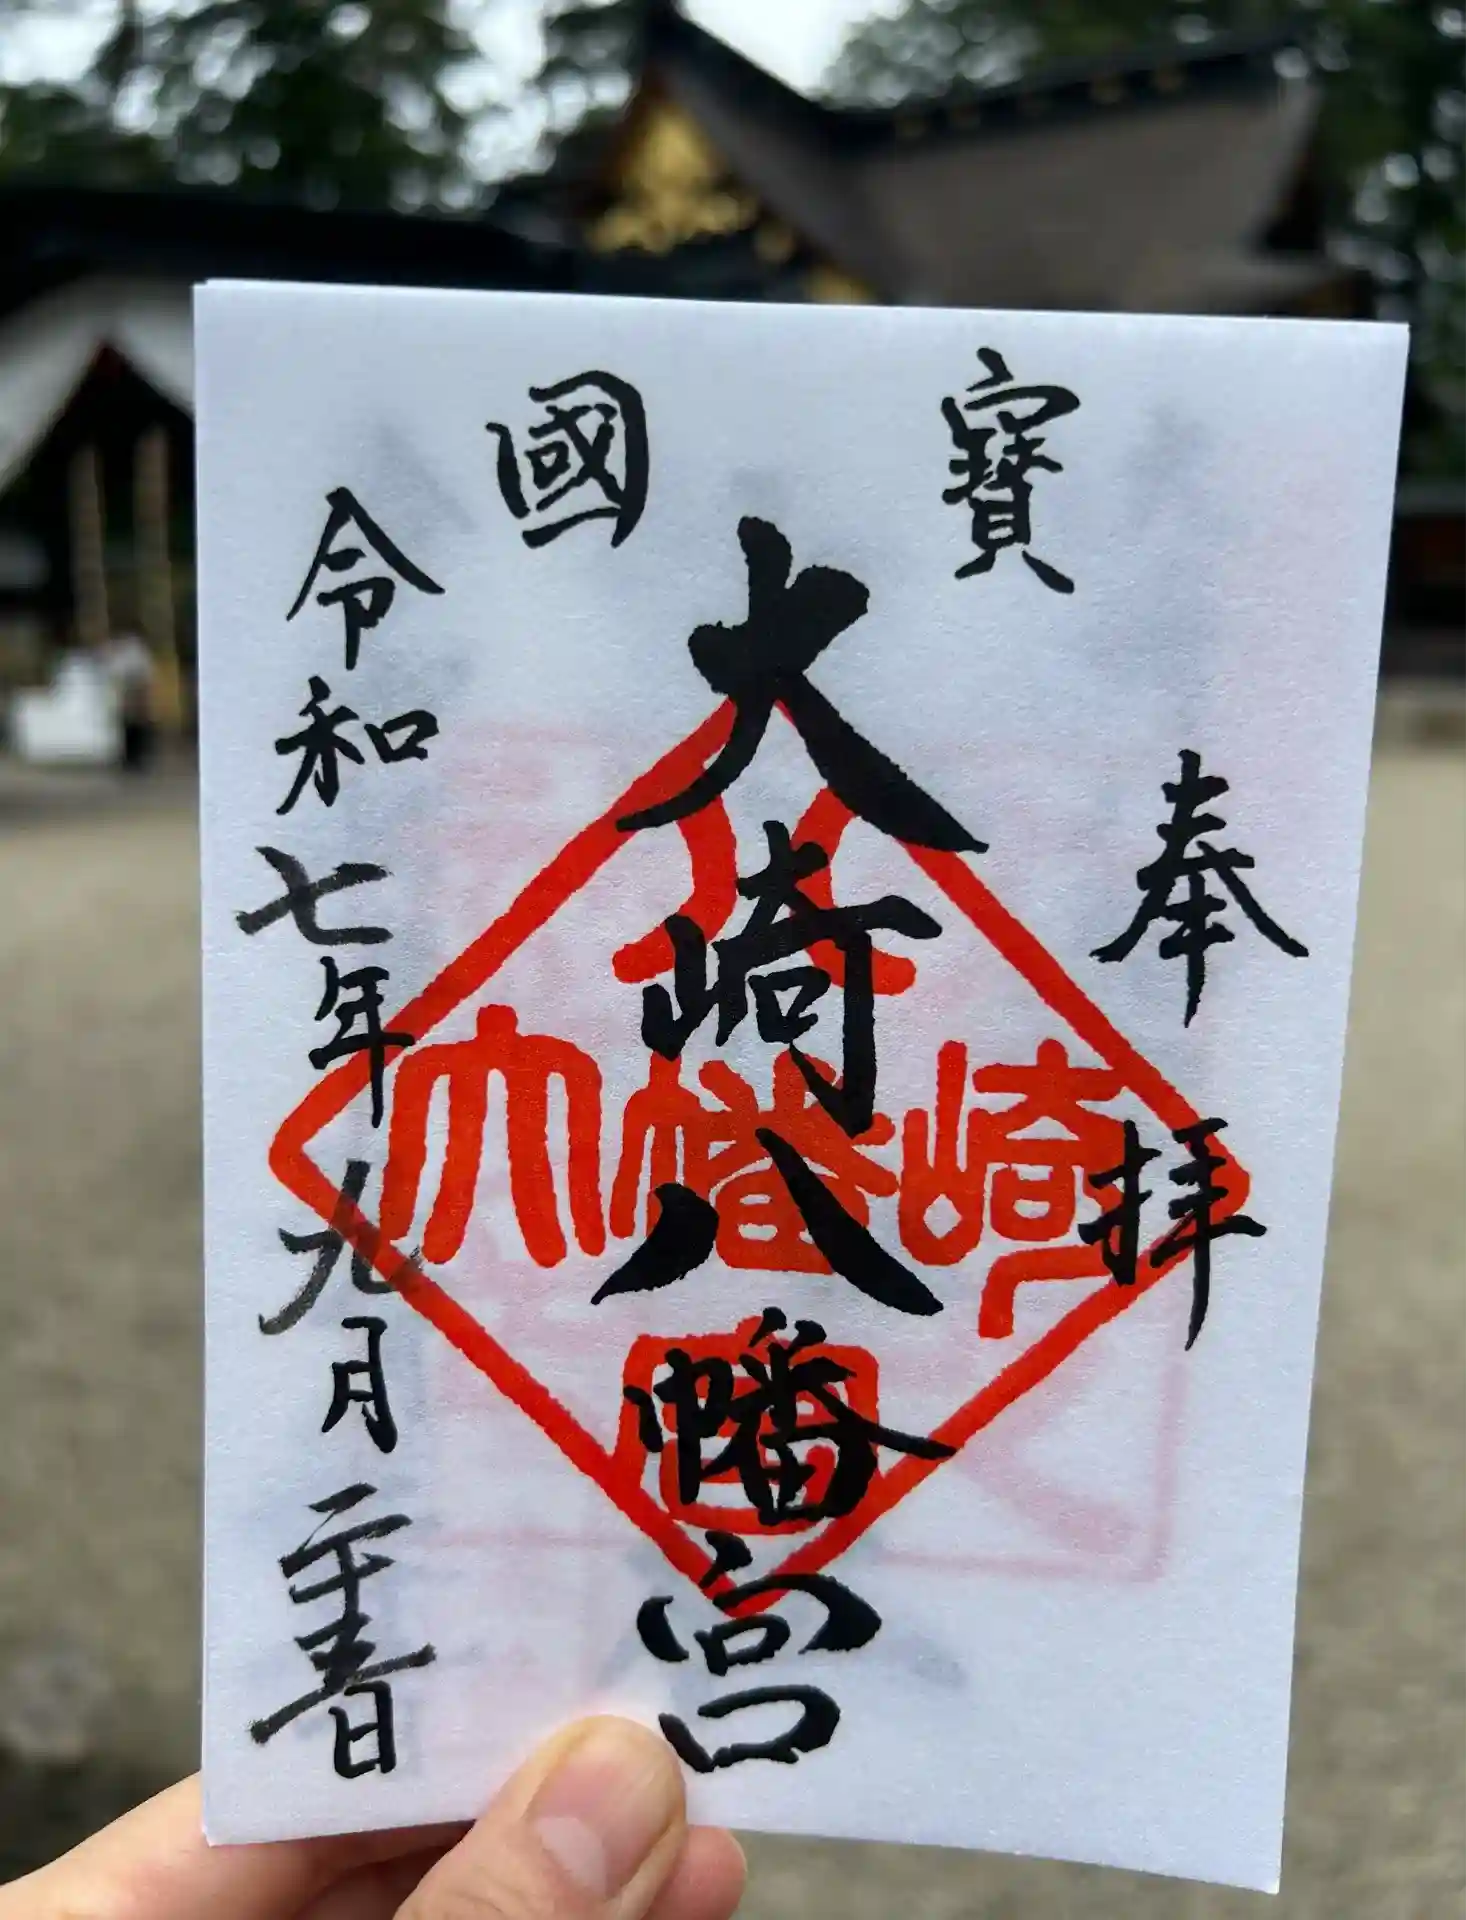 國寶
奉拝
大崎八幡宮
令和七年九月二十三日
大崎八幡宮